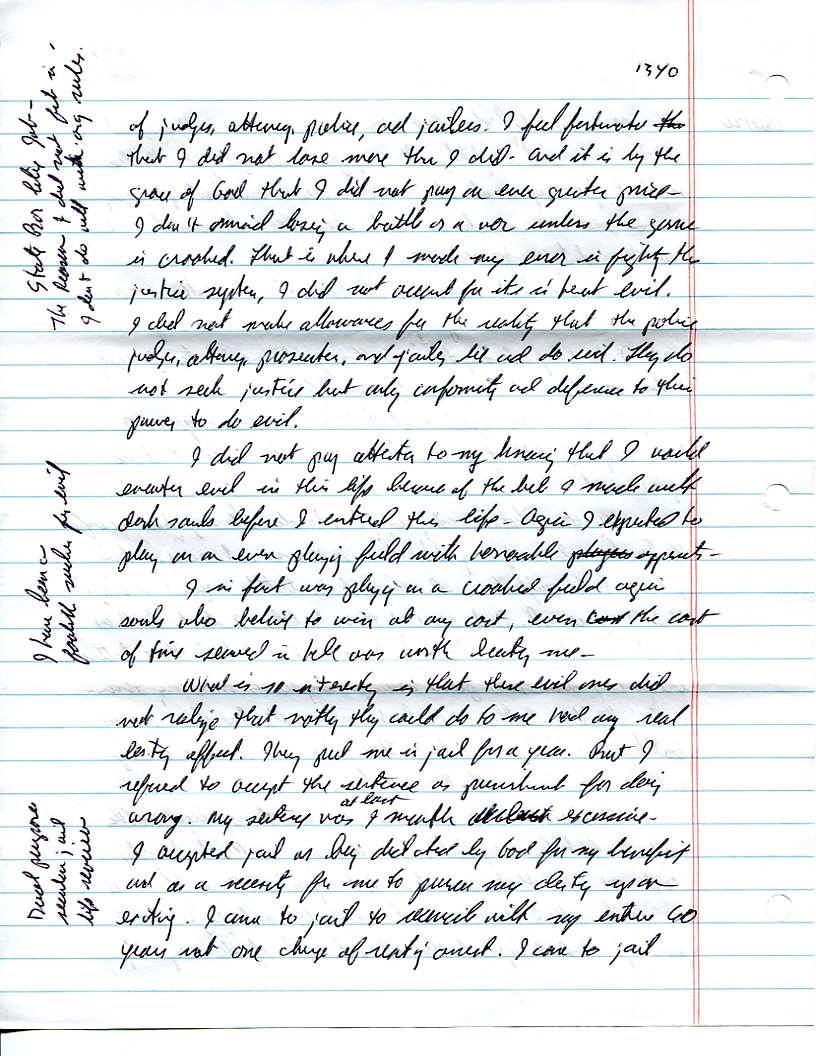 1340
of judges, attorneys, police, and jailers. I feel fortunate the
that I did not lose more than I did - And it is by the
grace of God that I did not pay an even greater price -
I don't mind losing a battle or a war unless the game
is crooked. That is where I made my error in fighting the
justice system, I did not account for its inherent evil.
I did not make allowances for the reality that the police
judges, attorneys, prosecutors, and jailers lie and do evil. They do
not seek justice but only conformity and deference to their
power to do evil.
I did not pay attention to my knowing that I would
encounter evil in this life because of the bet I made with
dark souls before I entered this life - Again I expected to
play on an even playing field with honorable players opponents -
I in fact was playing on a crooked field again
souls who believe to win at any cost, even cost the cost
of time served in hell was worth beating me -
What is so interesting is that these evil ones did
not realize that nothing they could do to me had any real
lasting affect. They put me in jail for a year. But I
refused to accept the sentence as punishment for doing
wrong. My sentence was at least 1 month excessive -
I accepted jail as being dictated by God for my benefit
and as a necessity for me to pursue my destiny upon
exiting. I came to jail to reconcile with my entire 60
years not one charge of resisting arrest. I came to jail
State Pros help Job -
The Reason I did not fit in -
I don't do well with org rules.
I have been a
foolish sucker for evil
Dual purpose
sentence jail
life review